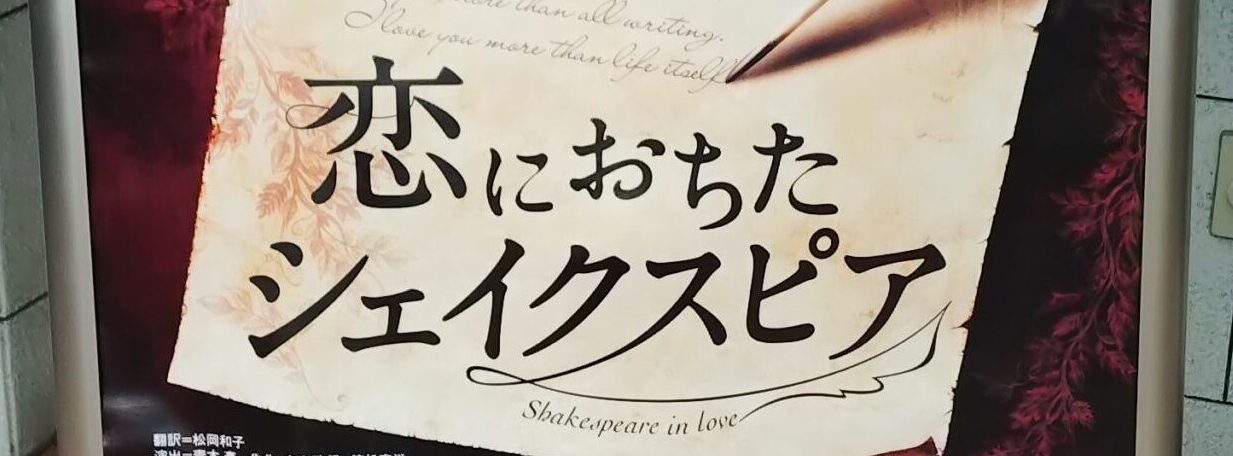 more than all writing.
I love you more than life itself
恋におちた
シェイクスピア
Shakespeare in love
翻訳=松岡和子
演出=青木豪